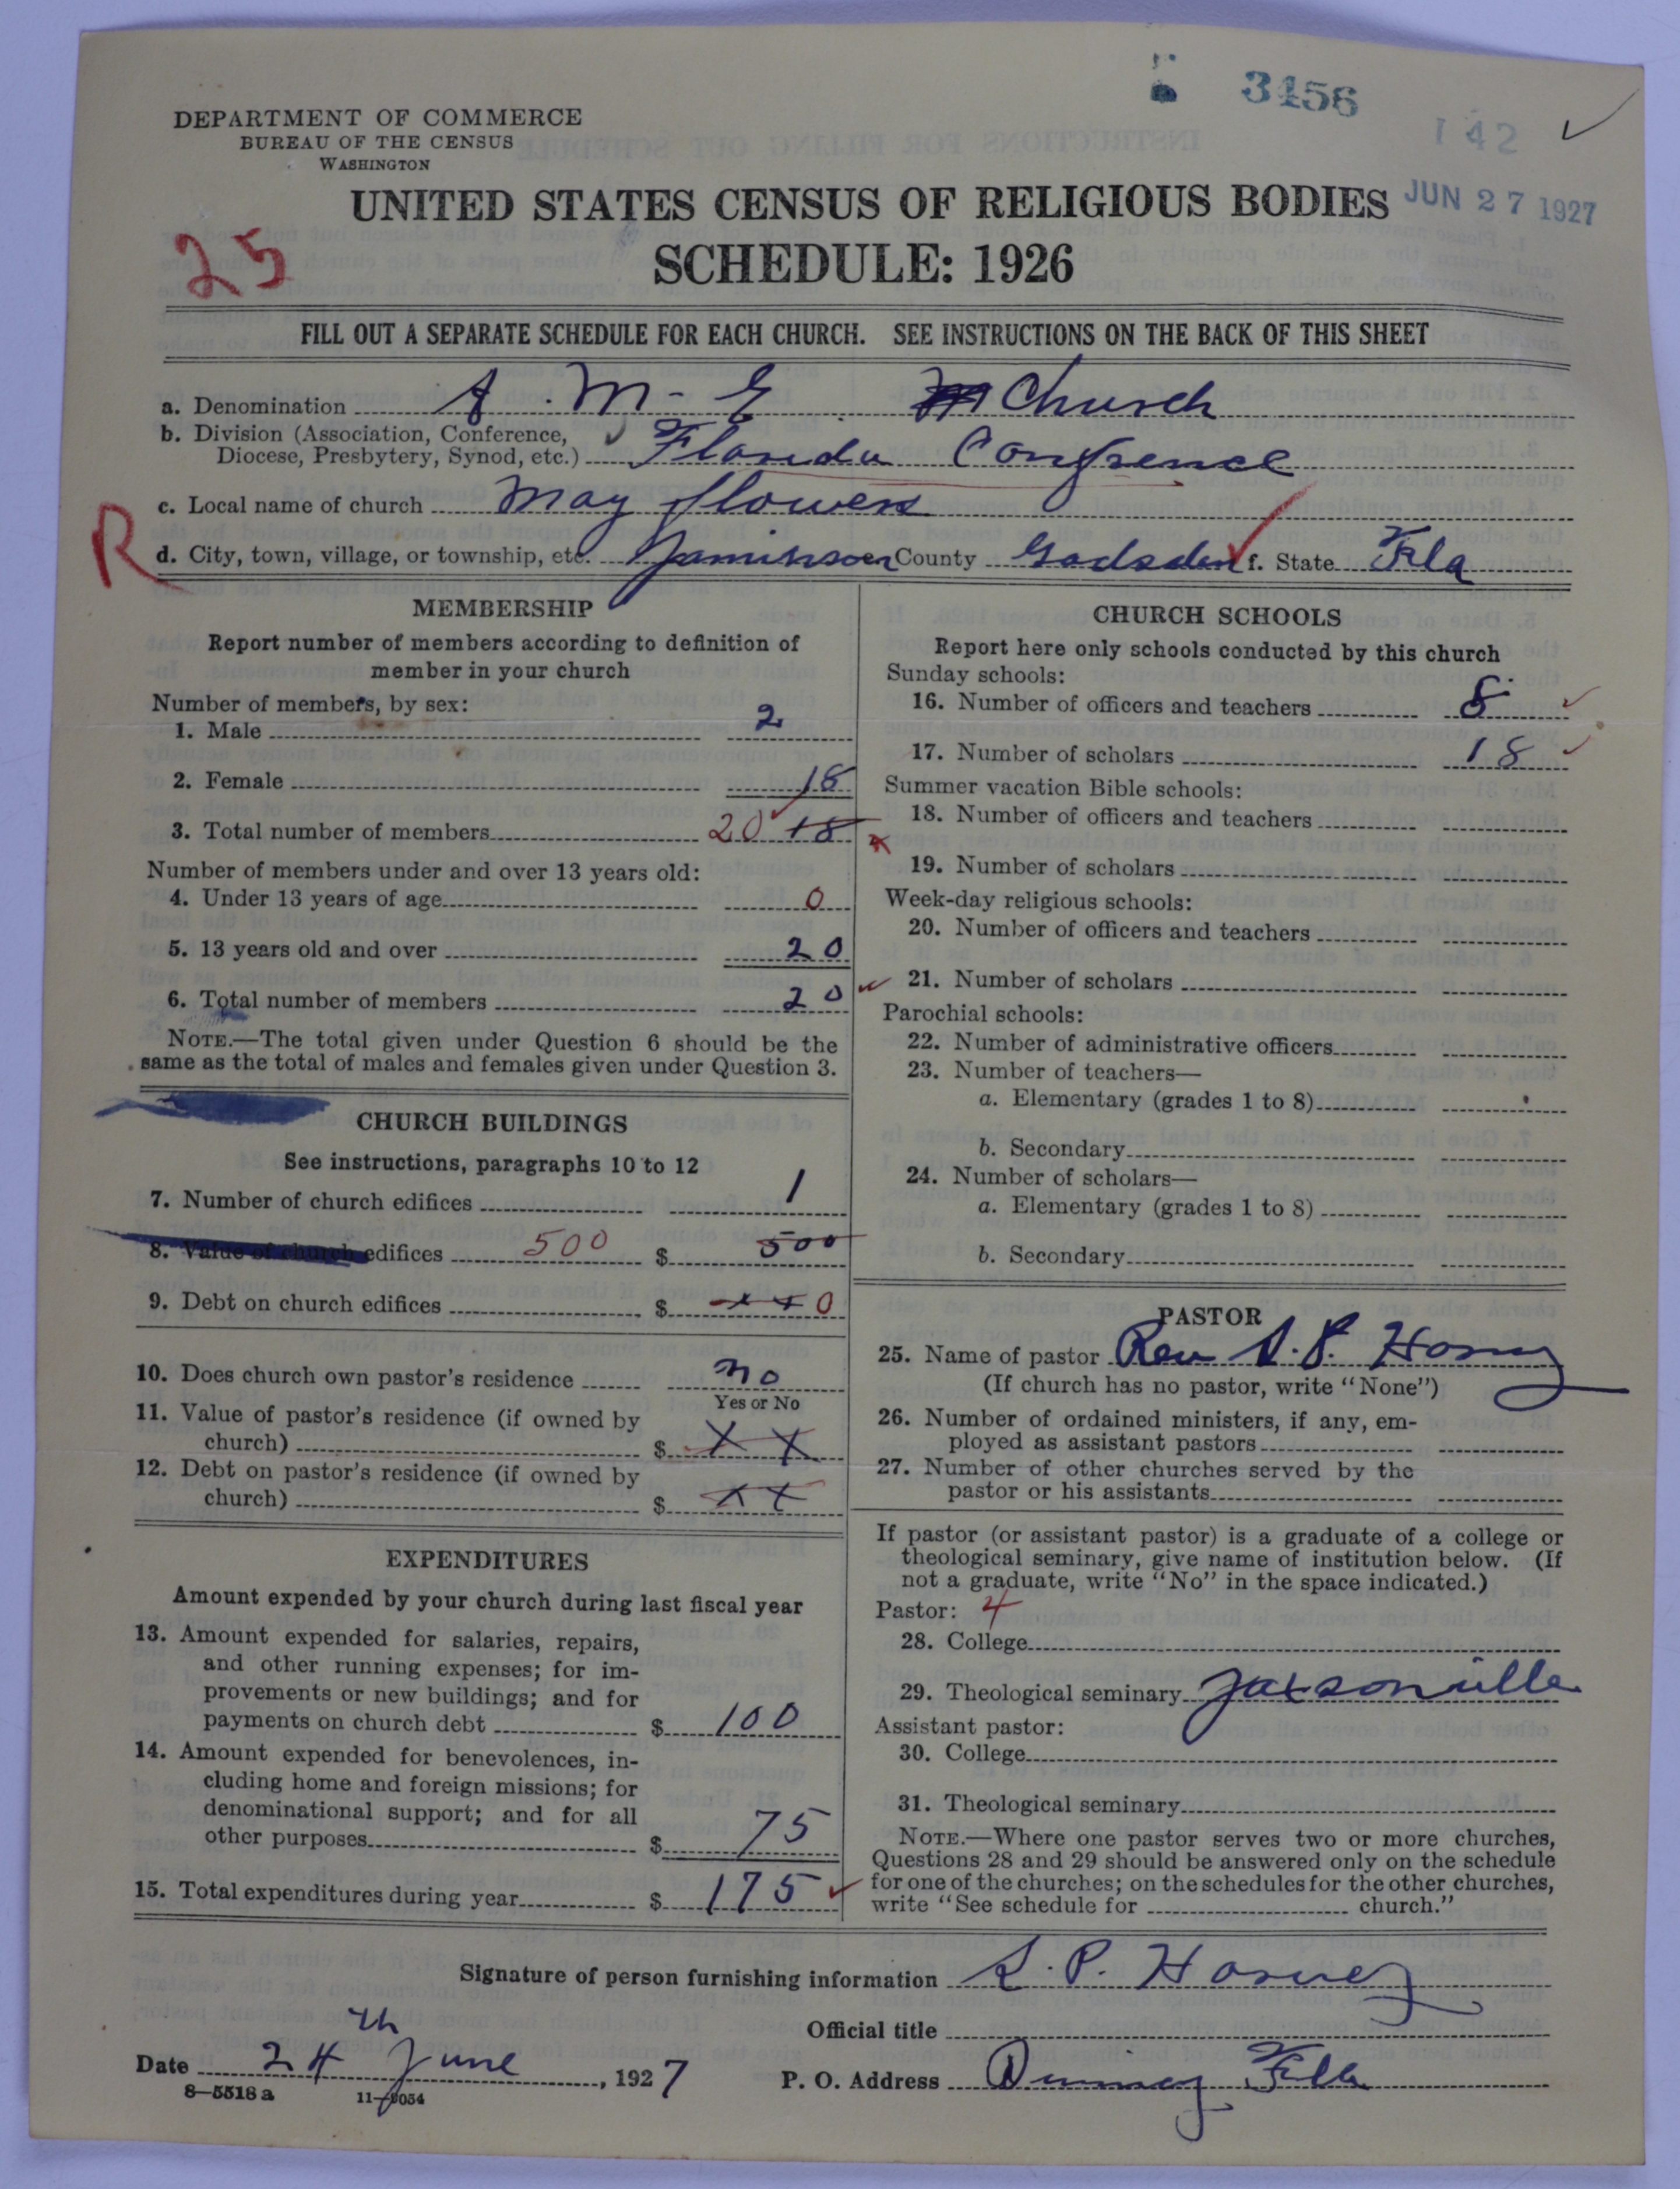 3456
142 ✓
DEPARTMENT OF COMMERCE
BUREAU OF THE CENSUS
WASHINGTON
JUN 27 1927
UNITED STATES CENSUS OF RELIGIOUS BODIES
25
SCHEDULE: 1926
FILL OUT A SEPARATE SCHEDULE FOR EACH CHURCH. SEE INSTRUCTIONS ON THE BACK OF THIS SHEET
a. Denomination A. M. E. Church
b. Division (Association, Conference, Diocese, Presbytery, Synod, etc.) Florida Confrence
c. Local name of church May flowers
R
d. City, town, village, or township, etc. County Gadsden f. State Fla
MEMBERSHIP
Report number of members according to definition of
member in your church
Number of members, by sex:
1. Male 2
2. Female 18
3. Total number of members 20 18
Number of members under and over 13 years old:
4. Under 13 years of age 0
5. 13 years old and over 20
6. Total number of members 20
NOTE.—The total given under Question 6 should be the
same as the total of males and females given under Question 3.
CHURCH BUILDINGS
See instructions, paragraphs 10 to 12
7. Number of church edifices 1
8. Value of church edifices 500 $ 500
9. Debt on church edifices $ xx 0
10. Does church own pastor's residence no
Yes or No
11. Value of pastor's residence (if owned by
church) $ X X
12. Debt on pastor's residence (if owned by
church) $ X X
EXPENDITURES
Amount expended by your church during last fiscal year
13. Amount expended for salaries, repairs,
and other running expenses; for im-
provements or new buildings; and for
payments on church debt $ 100
14. Amount expended for benevolences, in-
cluding home and foreign missions; for
denominational support; and for all
other purposes $ 75
15. Total expenditures during year $ 175
CHURCH SCHOOLS
Report here only schools conducted by this church
Sunday schools:
16. Number of officers and teachers 8
17. Number of scholars 18
Summer vacation Bible schools:
18. Number of officers and teachers
19. Number of scholars
Week-day religious schools:
20. Number of officers and teachers
21. Number of scholars
Parochial schools:
22. Number of administrative officers
23. Number of teachers—
a. Elementary (grades 1 to 8)
b. Secondary
24. Number of scholars—
a. Elementary (grades 1 to 8)
b. Secondary
PASTOR
25. Name of pastor Rev S. P. Harvey
(If church has no pastor, write "None")
26. Number of ordained ministers, if any, em-
ployed as assistant pastors
27. Number of other churches served by the
pastor or his assistants
If pastor (or assistant pastor) is a graduate of a college or
theological seminary, give name of institution below. (If
not a graduate, write "No" in the space indicated.)
Pastor: 4
28. College
29. Theological seminary Jaxsonville
Assistant pastor:
30. College
31. Theological seminary
NOTE.—Where one pastor serves two or more churches,
Questions 28 and 29 should be answered only on the schedule
for one of the churches; on the schedules for the other churches,
write "See schedule for church."
Signature of person furnishing information S. P. Harvey
Official title
Date 24th June, 1927
P. O. Address Quincy Fla
8—5518 a 11—9054